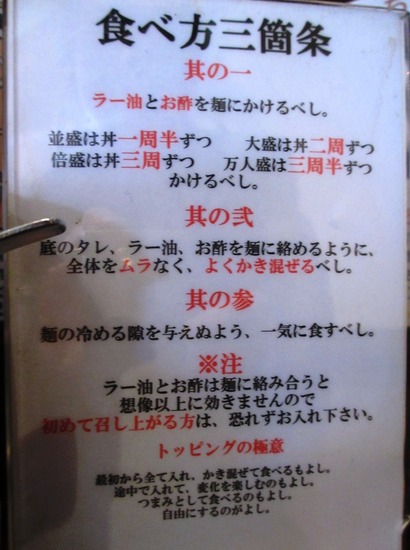 食べ方三箇条
其の一
ラー油とお酢を麺にかけるべし。
並盛は丼一周半ずつ　大盛は丼二周ずつ
倍盛は丼三周ずつ　万人盛は三周半ずつ
かけるべし。
其の弐
底のタレ、ラー油、お酢を麺に絡めるように、
全体をムラなく、よくかき混ぜるべし。
其の参
麺の冷める隙を与えぬよう、一気に食すべし。
※注
ラー油とお酢は麺に絡み合うと
想像以上に効きませんので
初めて召し上がる方は、恐れずお入れ下さい。
トッピングの極意
最初から全て入れ、かき混ぜて食べるもよし。
途中で入れて、変化を楽しむのもよし。
つまみとして食べるのもよし。
自由にするのがよし。